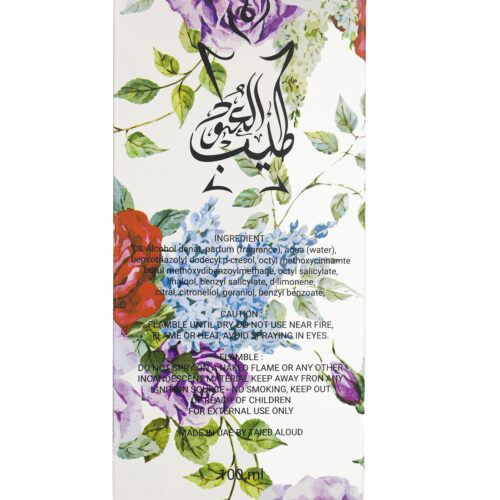 طيب العود
INGREDIENT :
Alcohol denat, parfum (fragrance), aqua (water),
benzotriazolyl dodecyl p-cresol, octyl methoxycinnamte
butul methoxydibenzoylmethane, octyl salicylate,
linalool, benzyl salicylate, d-limonene,
citral, citronellol, geraniol, benzyl benzoate,
CAUTION :
FLAMBLE UNTIL DRY, DO NOT USE NEAR FIRE,
FLAME OR HEAT, AVOID SPRAYING IN EYES.
FLAMBLE :
DO NOT SPRY ON A NAKED FLAME OR ANY OTHER
INCANDESCENT MATERIAL KEEP AWAY FRON ANY
IGNITION SOURCE - NO SMOKING, KEEP OUT
OF REACH OF CHILDREN
FOR EXTERNAL USE ONLY
MADE IN UAE BY TAIEB ALOUD
100 ml